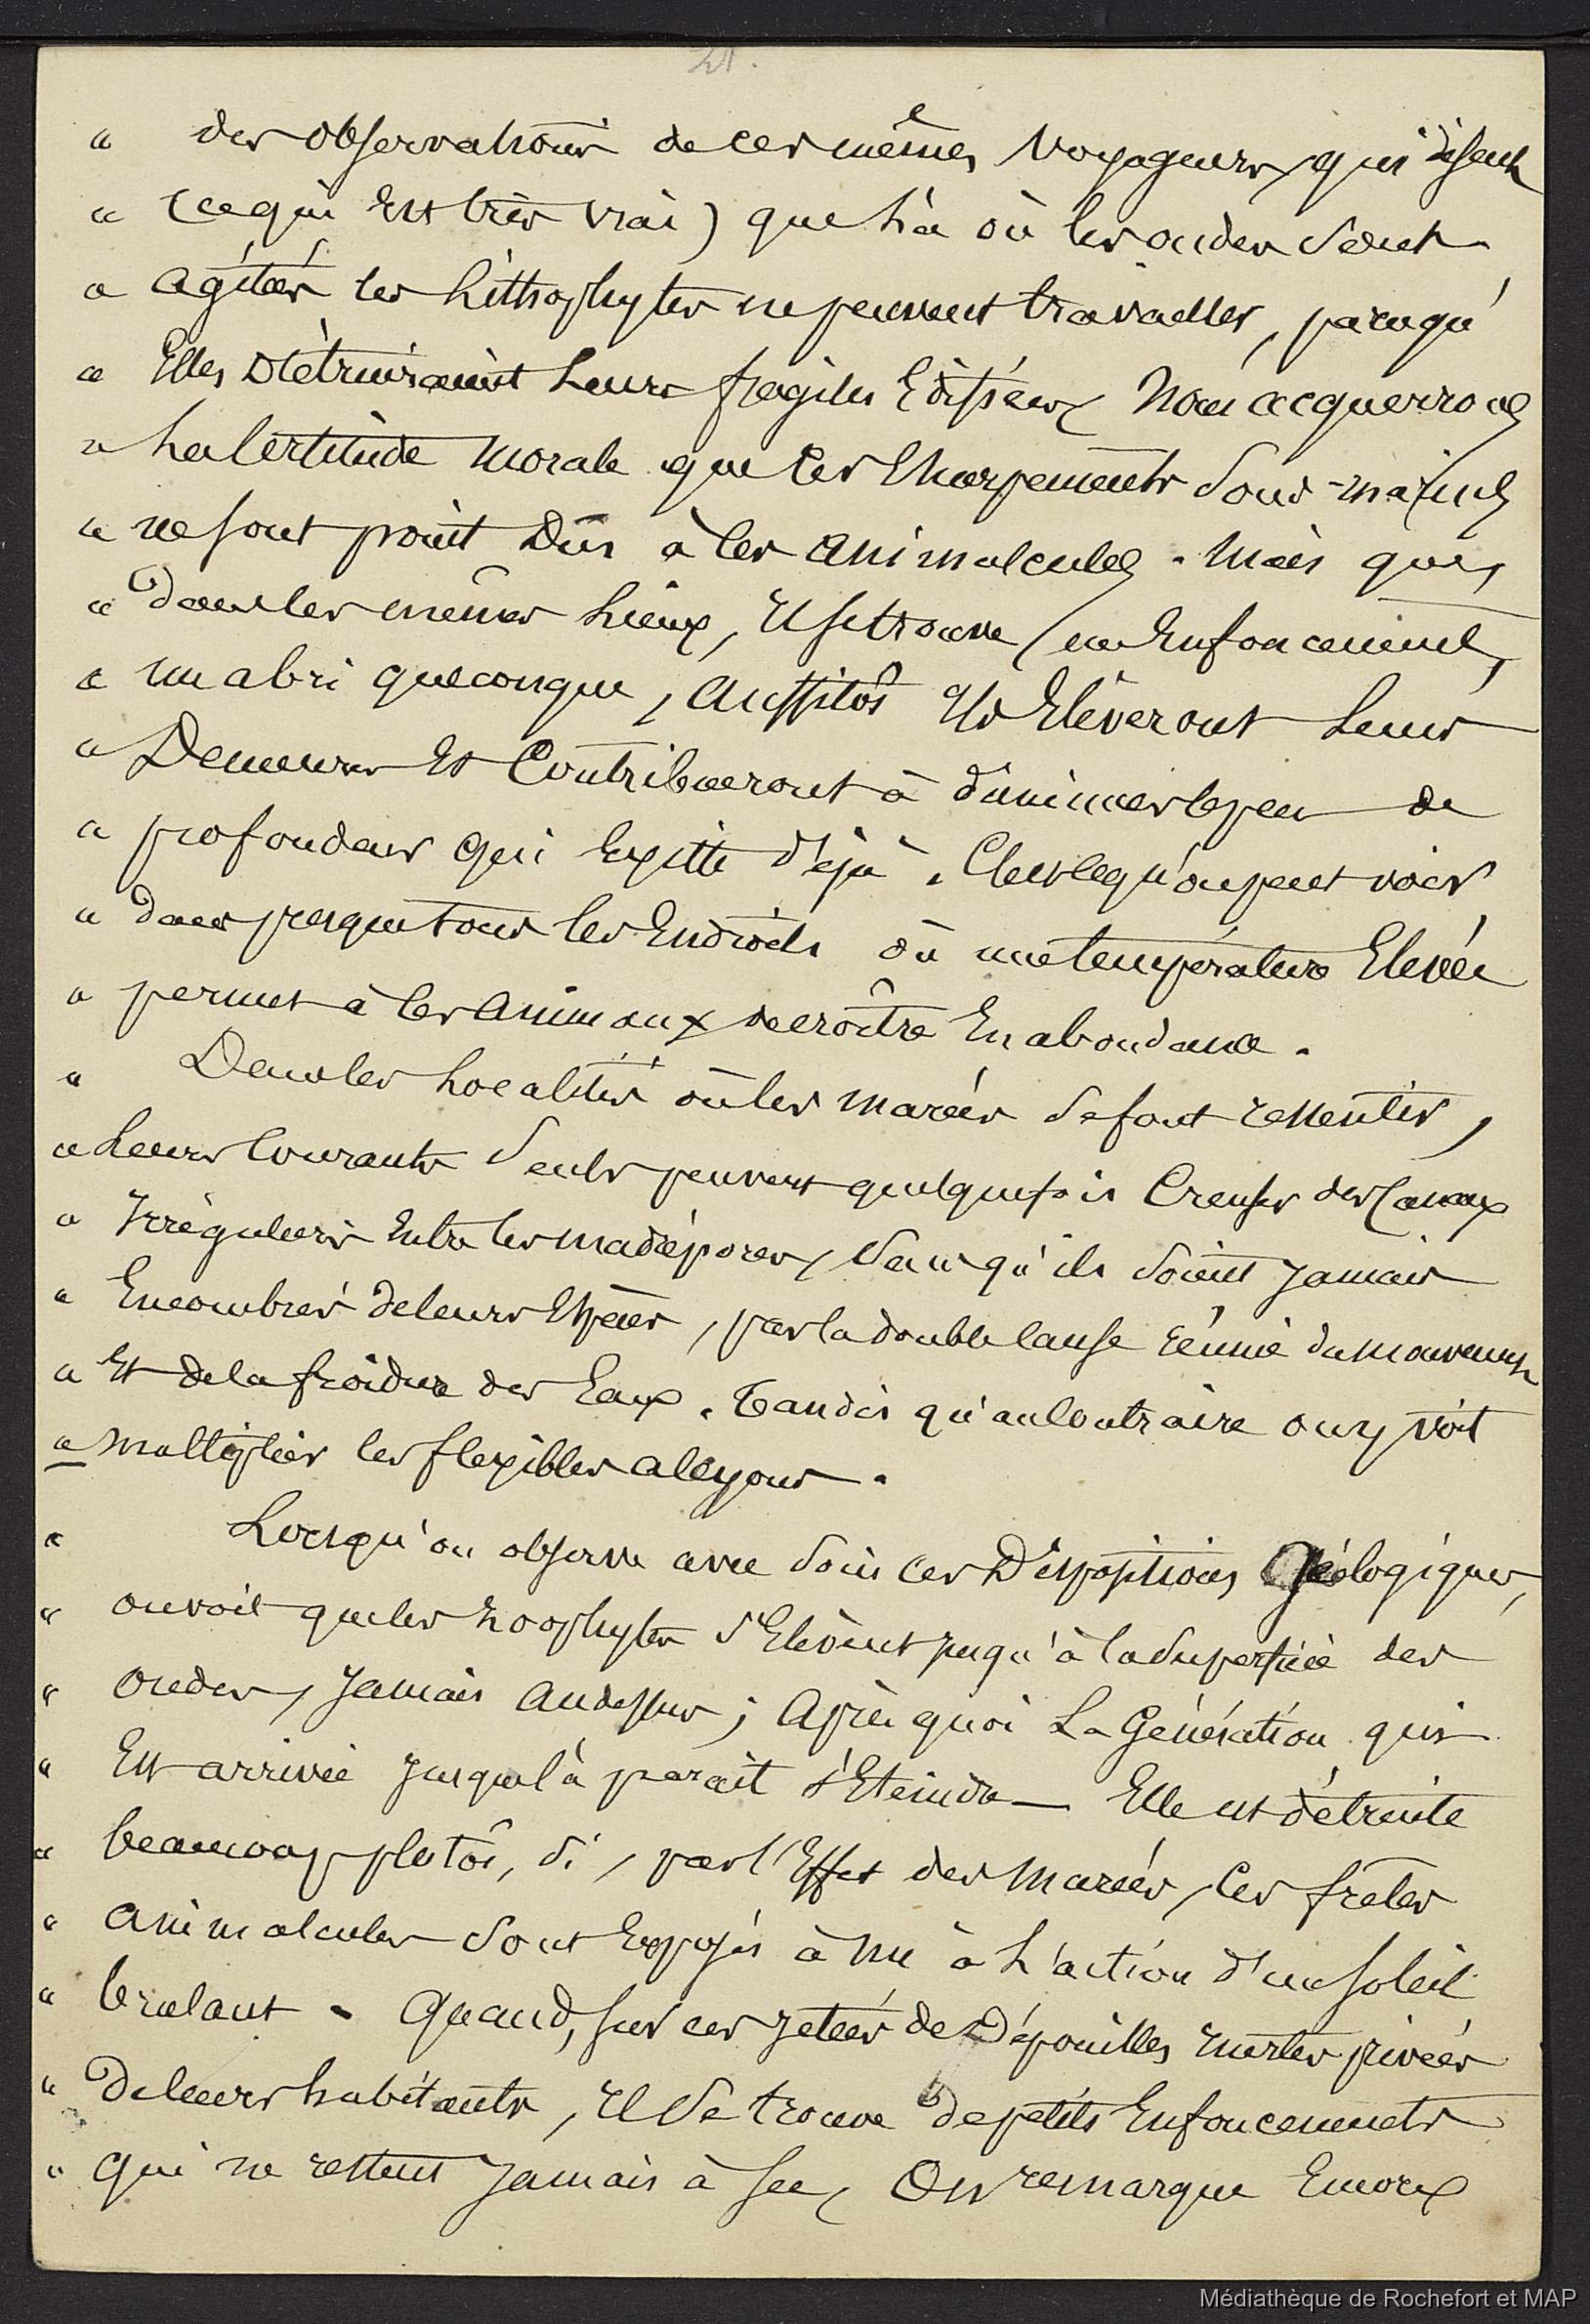 21.
" des observations de ces mêmes voyageurs, qui disent
" (ce qui Est très vrai) que là où les ondes sont
" agitées les Lithophytes ne peuvent travailler, parcequ'
" Elles Détruiraient Leurs fragiles Edifices, Nous acquerrons
" La Certitude morale que Ces Escarpements Sous-marins
" ne sont point Dûs à Ces animalcules. Mais que,
" Dans les mêmes Lieux, Il se trouve, un Enfoncement,
" un abri queconque, Aussitôt Ils Elèveront Leurs
" Demeures Et Contribueront à diminuer le peu de
" profondeur qui Existe déjà. C'est ce qu'on peut voir
" dans presque tous les Endroits où une température Elevée
" permet à Ces Animaux de croître En abondance.
" Dans les Localités où les marées se font ressentir,
" Leurs Courants Seuls peuvent quelquefois Creuser des Canaux
" Irréguliers Entre les madrépores, Sans qu'ils Soient Jamais
" Encombrés de leurs Espèces, par la double Cause réunie du mouvement
" Et de la froidure des Eaux. Tandis qu'au Contraire on y voit
" multiplier les flexibles alcyons.
" Lorsqu'on observe avec Soin Ces Dispositions Géologiques,
" on voit que les zoophytes S'Elèvent jusqu'à la Superficie des
" ondes, Jamais au dessus; Après quoi La Génération qui
" Est arrivée Jusque là parait S'Eteindre — Elle est détruite
" beaucoup plutôt, Si, par l'Effet des Marées, Ces frêles
" animalcules Sont Exposés à nu à L'action d'un soleil
" brulant - Quand, sur ces Jetées de Dépouilles Inertes privées
" De leurs habitants, Il Se trouve de petits Enfoncements
" qui ne restent Jamais à sec, On remarque Encore
Médiathèque de Rochefort et MAP